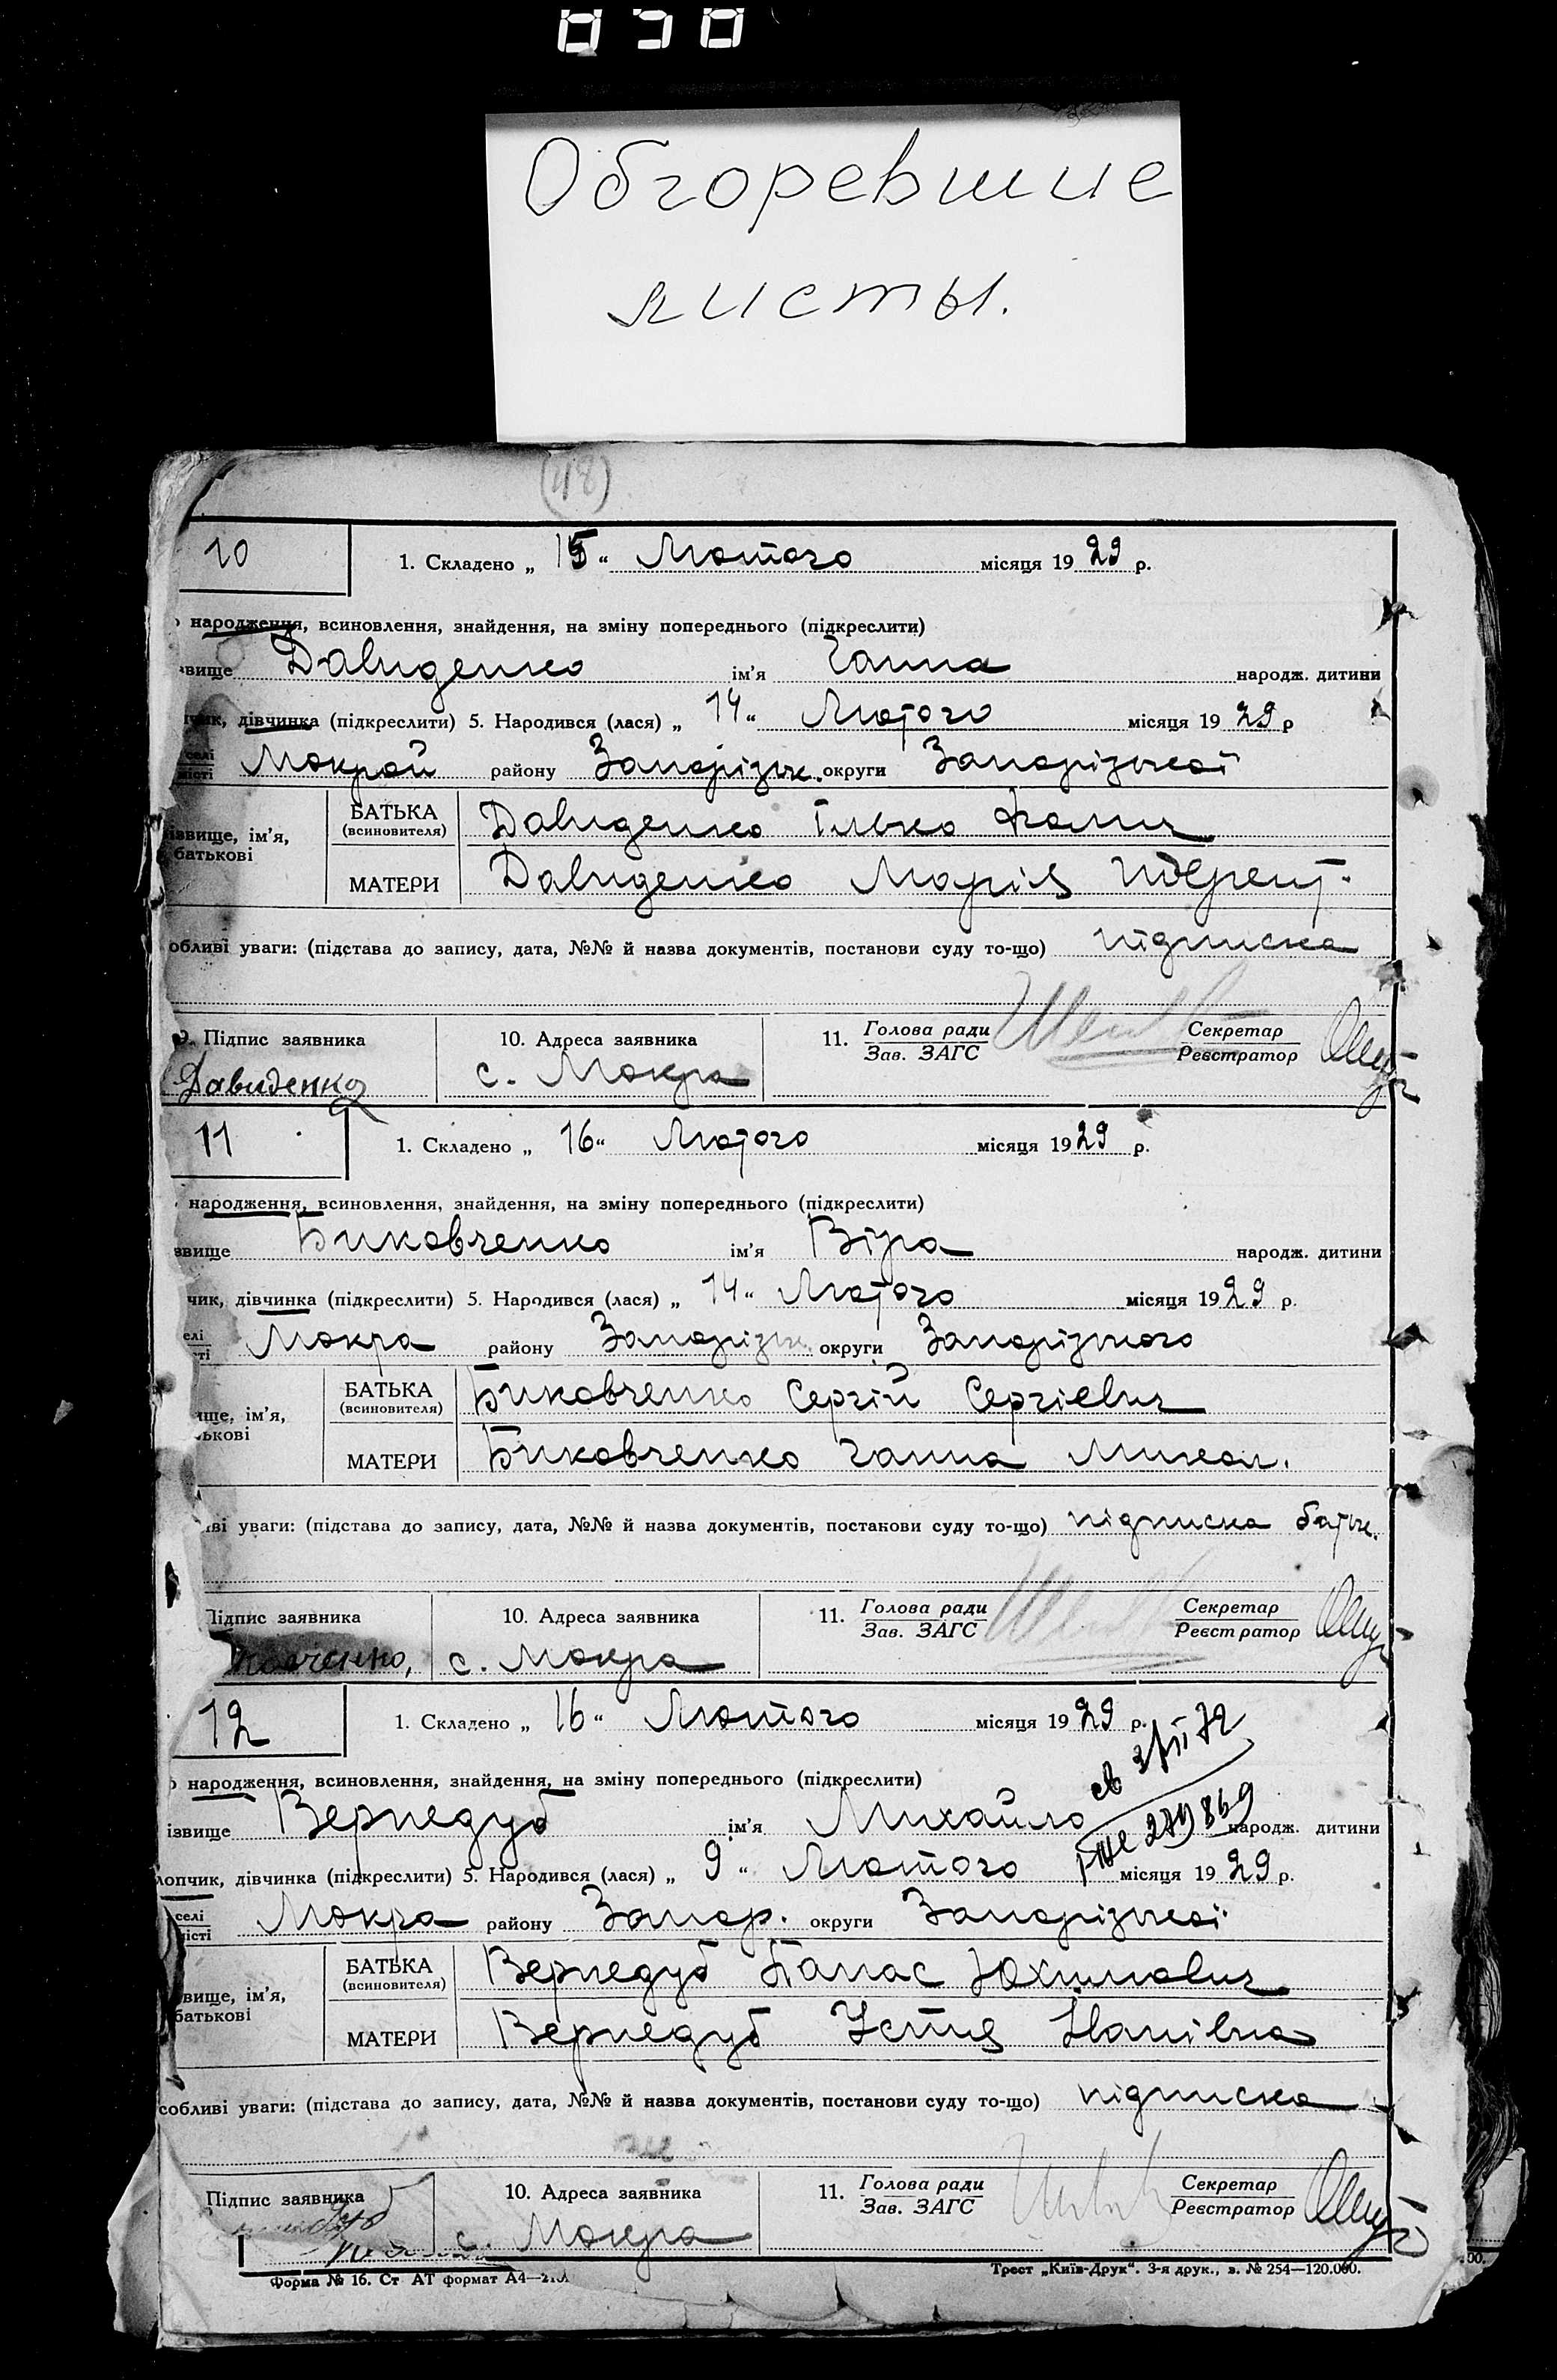 Обгоревшие
листы.
(48)
10 1. Складено „ 15 “ Лютого місяця 19 29 р.
народження, всиновлення, знайдення, на зміну попереднього (підкреслити)
звище Давиденко ім’я Ганна народж. дитини
чик, дівчинка (підкреслити) 5. Народився (лася) „ 14 “ Лютого місяця 19 29 р
селі
місті Мокрой району Запорізьк. округи Запорізької
ізвище, ім’я, батькові
БАТЬКА (всиновителя) Давиденко Ілько
МАТЕРИ Давиденко Марія
обливі уваги: (підстава до запису, дата, №№ й назва документів, постанови суду то-що) підписка
9. Підпис заявника 10. Адреса заявника 11. Голова ради Секретар
Зав. ЗАГС Реєстратор
Давиденко с. Мокра
11 1. Складено „ 16 “ Лютого місяця 19 29 р.
народження, всиновлення, знайдення, на зміну попереднього (підкреслити)
звище Биковченко ім’я Віра народж. дитини
чик, дівчинка (підкреслити) 5. Народився (лася) „ 14 “ Лютого місяця 19 29 р.
елі
сті Мокра району Запорізьк. округи Запорізького
ище, ім’я, ькові
БАТЬКА (всиновителя) Биковченко Сергій Сергієвич
МАТЕРИ Биковченко Ганна Микол.
ві уваги: (підстава до запису, дата, №№ й назва документів, постанови суду то-що) підписка батьк.
Підпис заявника 10. Адреса заявника 11. Голова ради Секретар
Зав. ЗАГС Реєстратор
ковченко, с. Мокра
12 1. Складено „ 16 “ Лютого місяця 19 29 р.
народження, всиновлення, знайдення, на зміну попереднього (підкреслити)
ізвище Вернедуб ім’я Михайло народж. дитини
лопчик, дівчинка (підкреслити) 5. Народився (лася) „ 9 “ Лютого місяця 19 29 р.
селі
місті Мокра району Запор. округи Запорізької
звище, ім’я, батькові
БАТЬКА (всиновителя) Вернедуб Панас Юхимович
МАТЕРИ Вернедуб Устя Іванівна
собливі уваги: (підстава до запису, дата, №№ й назва документів, постанови суду то-що) підписка
Підпис заявника 10. Адреса заявника 11. Голова ради Секретар
Зав. ЗАГС Реєстратор
с. Мокра
Форма № 16. Ст АТ формат А4— Трест „Київ-Друк“. 3-я друк., з. № 254—120.000.